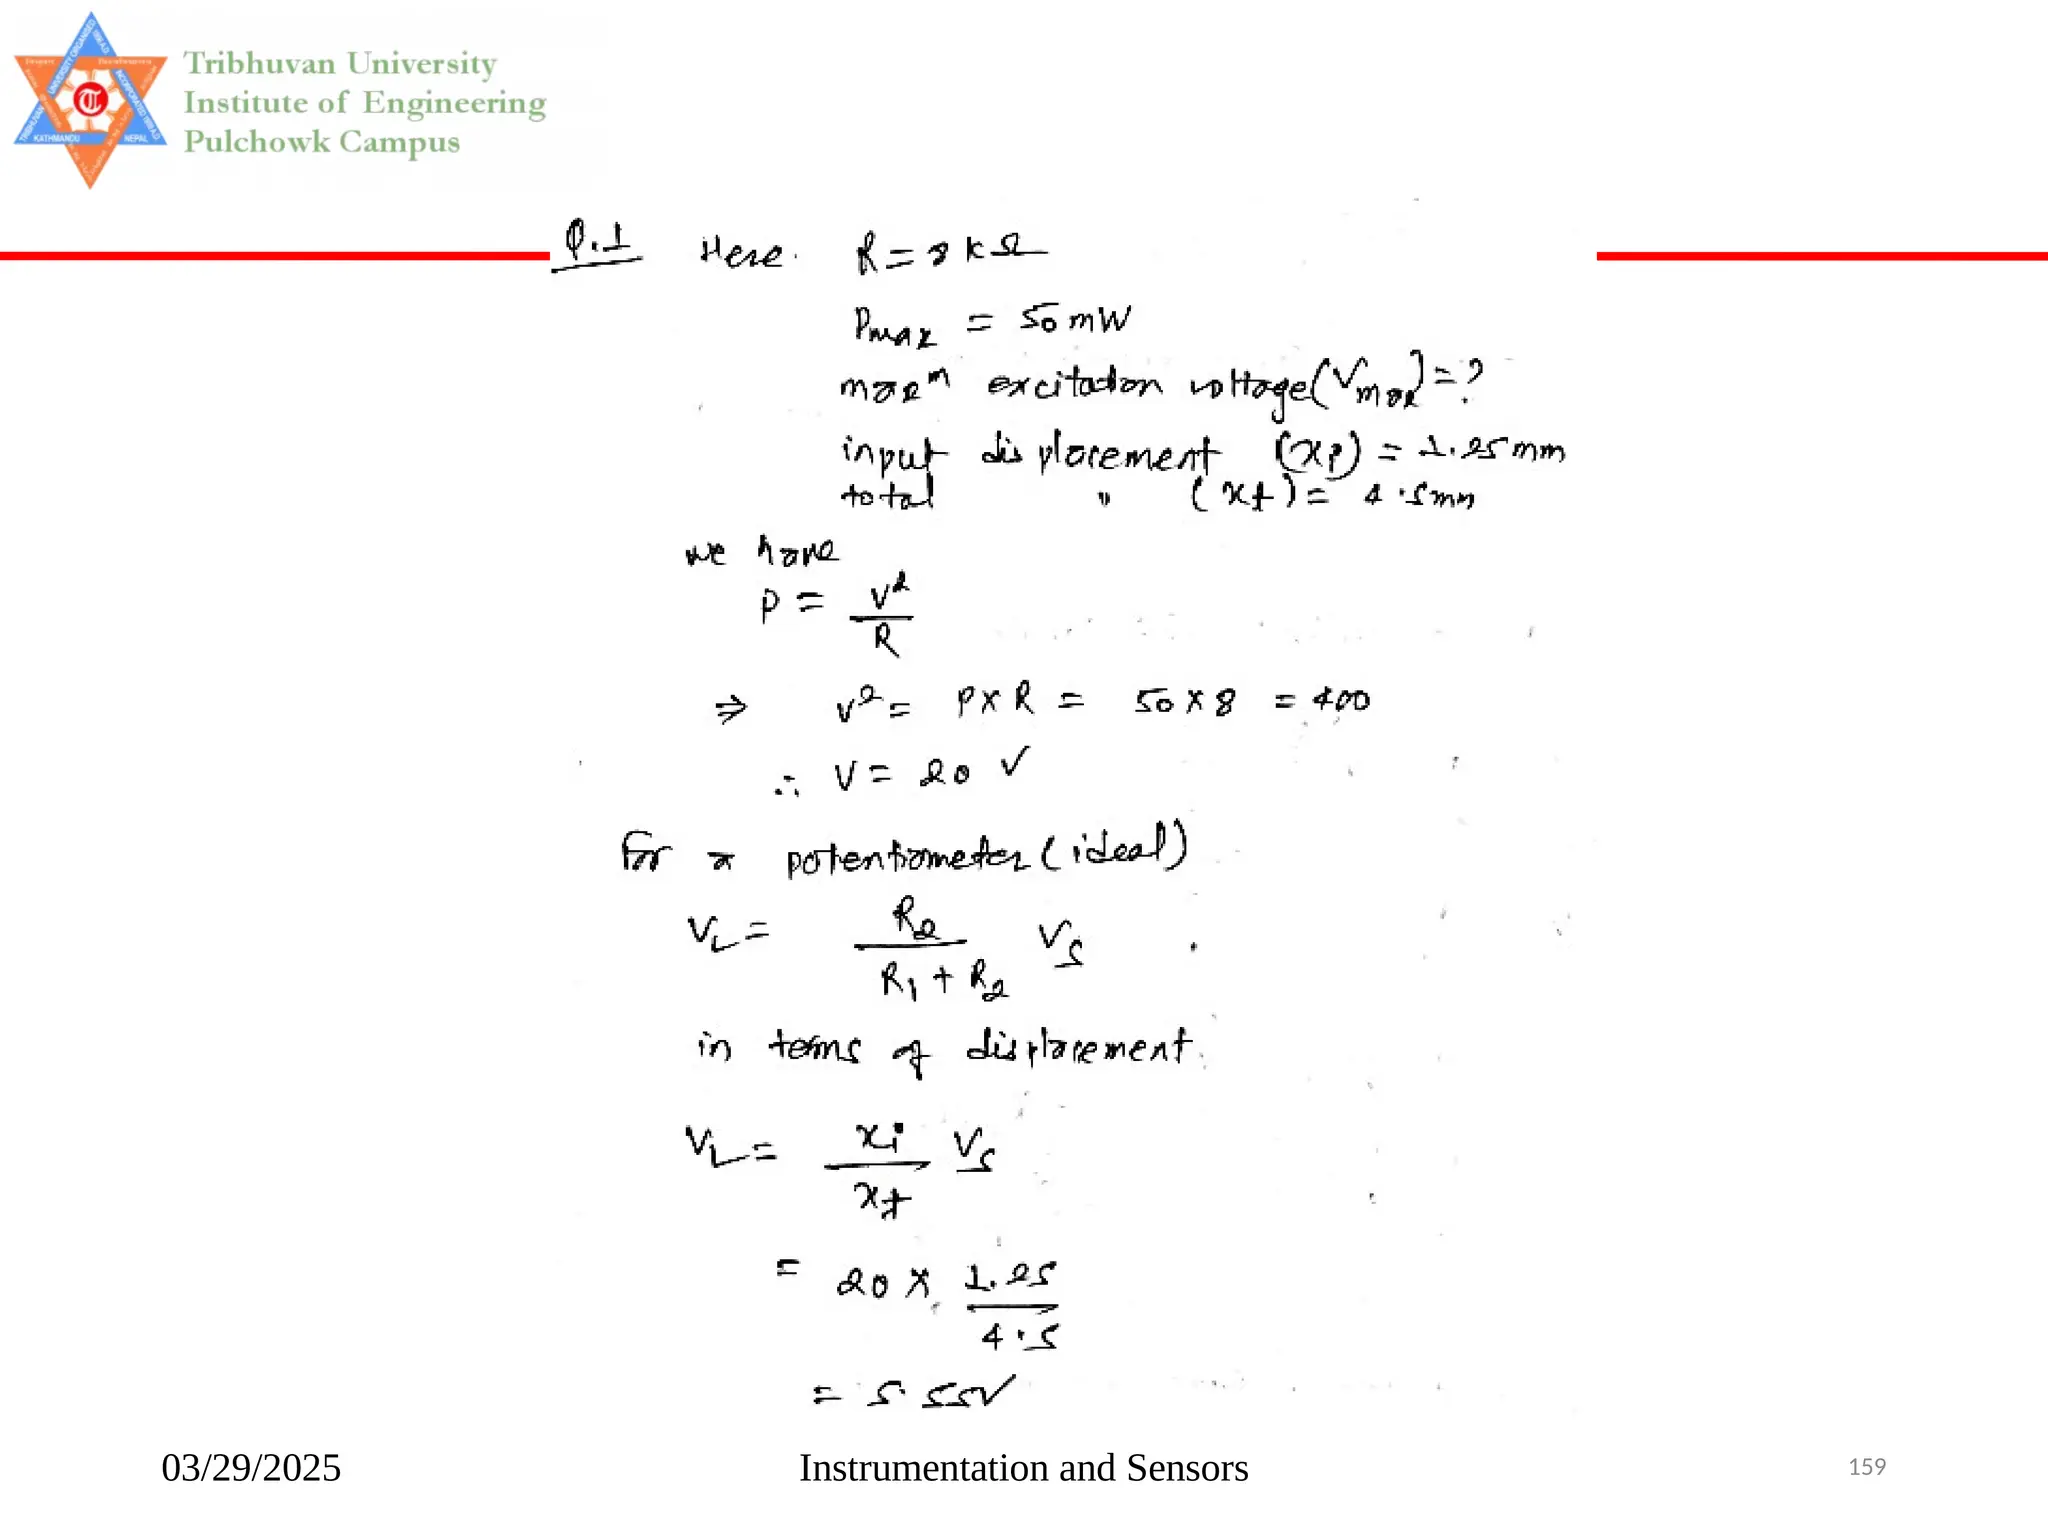 Tribhuvan University
Institute of Engineering
Pulchowk Campus
UNIVERSITY ORGANISED
INCORPORATED 1959 A.D.
TRIBHUVAN
KATHMANDU
NEPAL
Q.1 Here. R = 8 kΩ
Pmax = 50 mW
maxm excitation voltage (Vmax) = ?
input displacement (xi) = 1.25 mm
total " (xt) = 4.5mm
we have
P = V²/R
⇒ V² = P x R = 50 x 8 = 400
∴ V = 20 V
For a potentiometer (ideal)
VL = R2/(R1 + R2) Vs
in terms of displacement
VL = xi/xt Vs
= 20 x 1.25/4.5
= 5.55V
03/29/2025 Instrumentation and Sensors 159